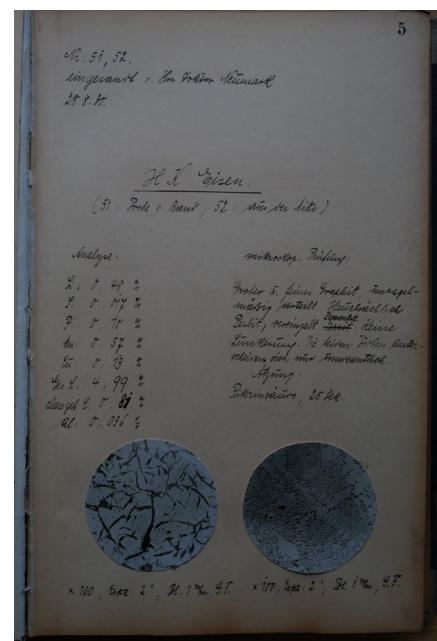 5
Nr. 51, 52.
eingesandt v. Hrn. Doktor Neumark
28.8.30.
H K Eisen.
(51: Probe v. Rand, 52: aus der Mitte)
Analyse:
mikroskop. Prüfung:
0,48 %
S. 0,017 %
P 0,10 %
Mn. 0,57 %
Cu. 0,13 %
Ges. C. 4,99 %
chem geb C. 0,81 %
Al: 0,036 %
Grober u. feiner Graphit, unregel-
mäßig verteilt Hauptsächlich
Perlit, vereinzelt Zementit Keine
Lunkerung. Die beiden Proben unter-
scheiden sich nur unwesentlich.
Ätzung:
Pikrinsäure, 25 Sek.
x 100, Expz. 2", Bl. 1 mm, G.F.
x 100, Expz. 2", Bl. 1 mm, G.F.